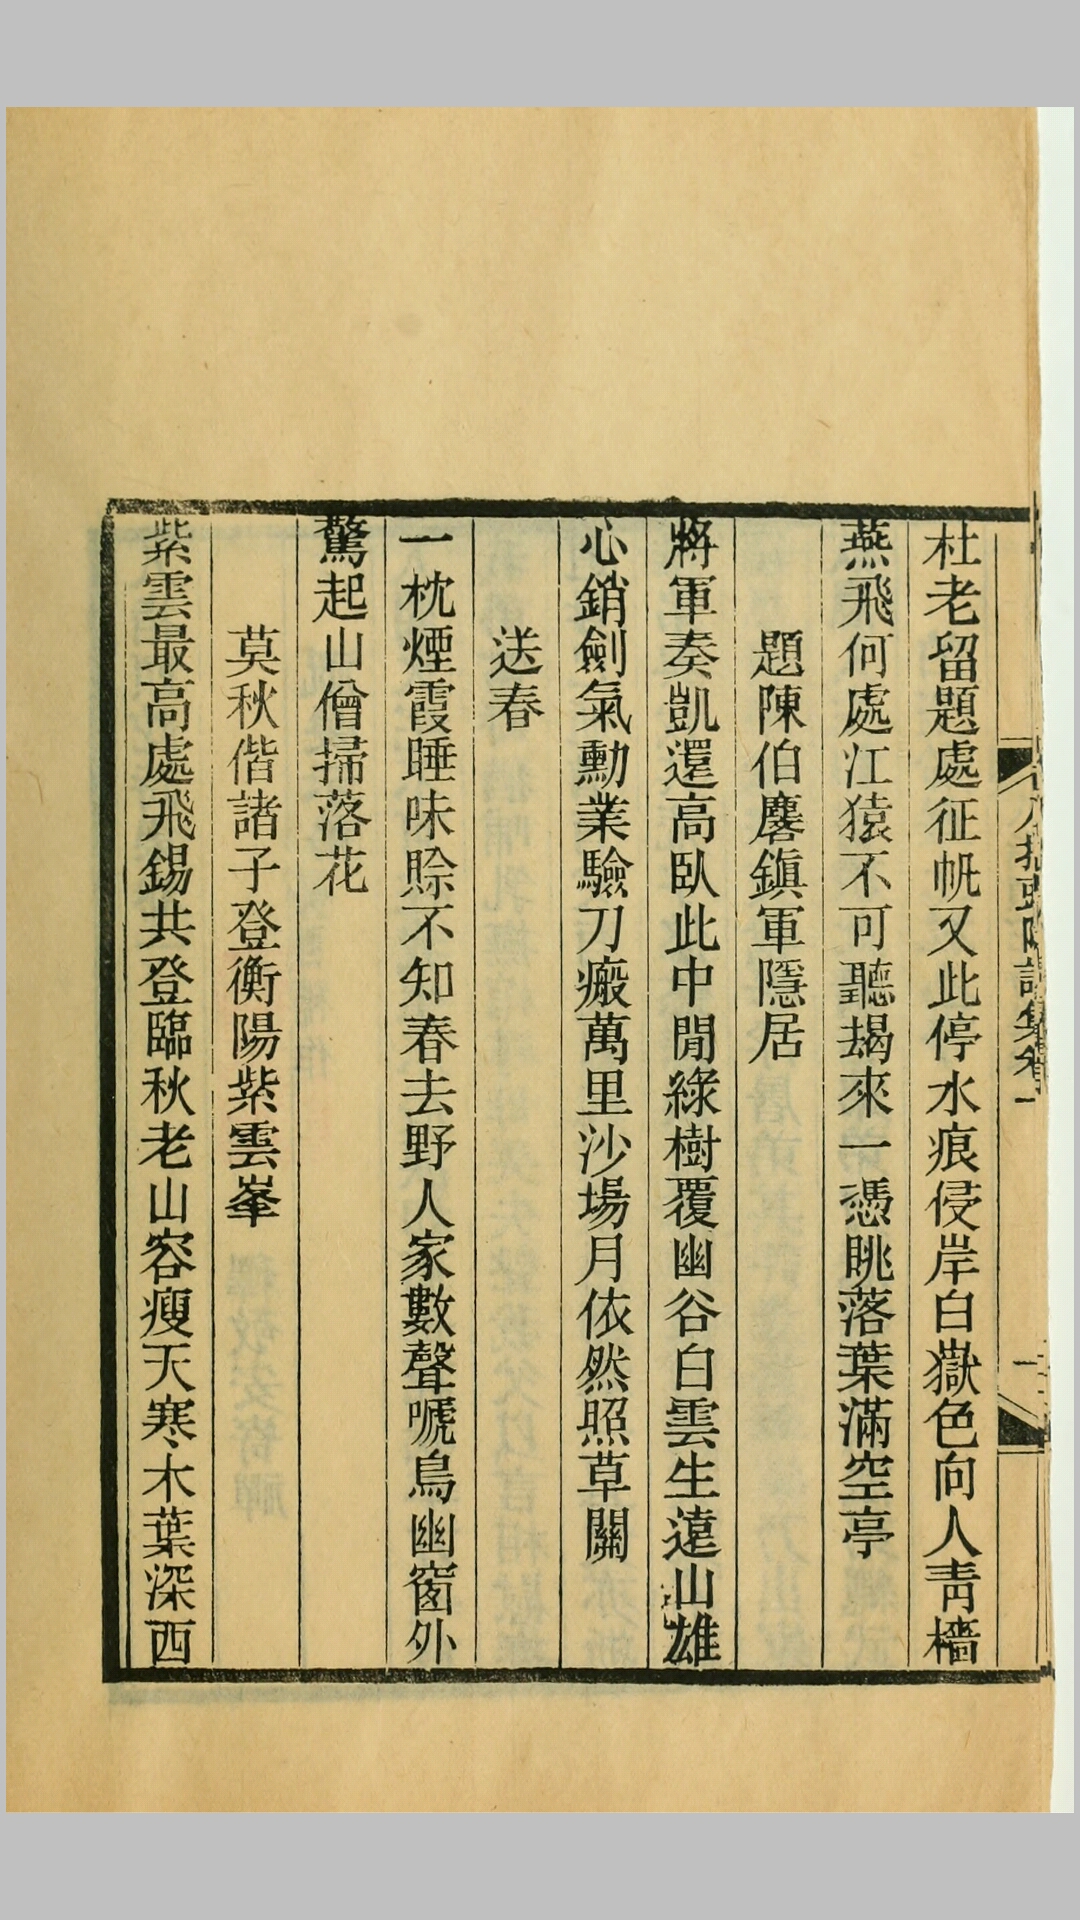 杜老留題處征帆又此停水痕侵岸白嶽色向人靑檣
燕飛何處江猿不可聽朅來一憑眺落葉滿空亭
題陳伯麐鎭軍隱居
將軍奏凱還高臥此中閒綠樹覆幽谷白雲生遠山雄
心銷劍氣勳業驗刀瘢萬里沙場月依然照草關
送春
一枕煙霞睡味賖不知春去野人家數聲嗁鳥幽窗外
驚起山僧掃落花
莫秋偕諸子登衡陽紫雲峯
紫雲最高處飛錫共登臨秋老山容瘦天寒木葉深西